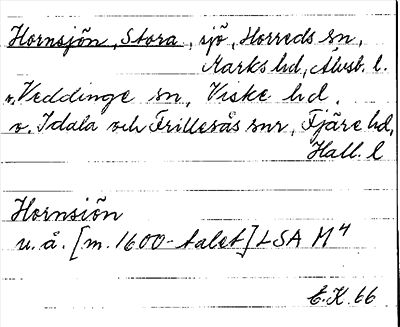 Hornsjön, Stora, sjö, Horreds sn,
Marks hd, Älvsb. l.
o. Veddinge sn, Viske hd.
o. Idala och Frillesås snr, Fjäre hd,
Hall. l
Hornsiön
u.å. [m. 1600-talet] LSA M⁴
E.K. 66